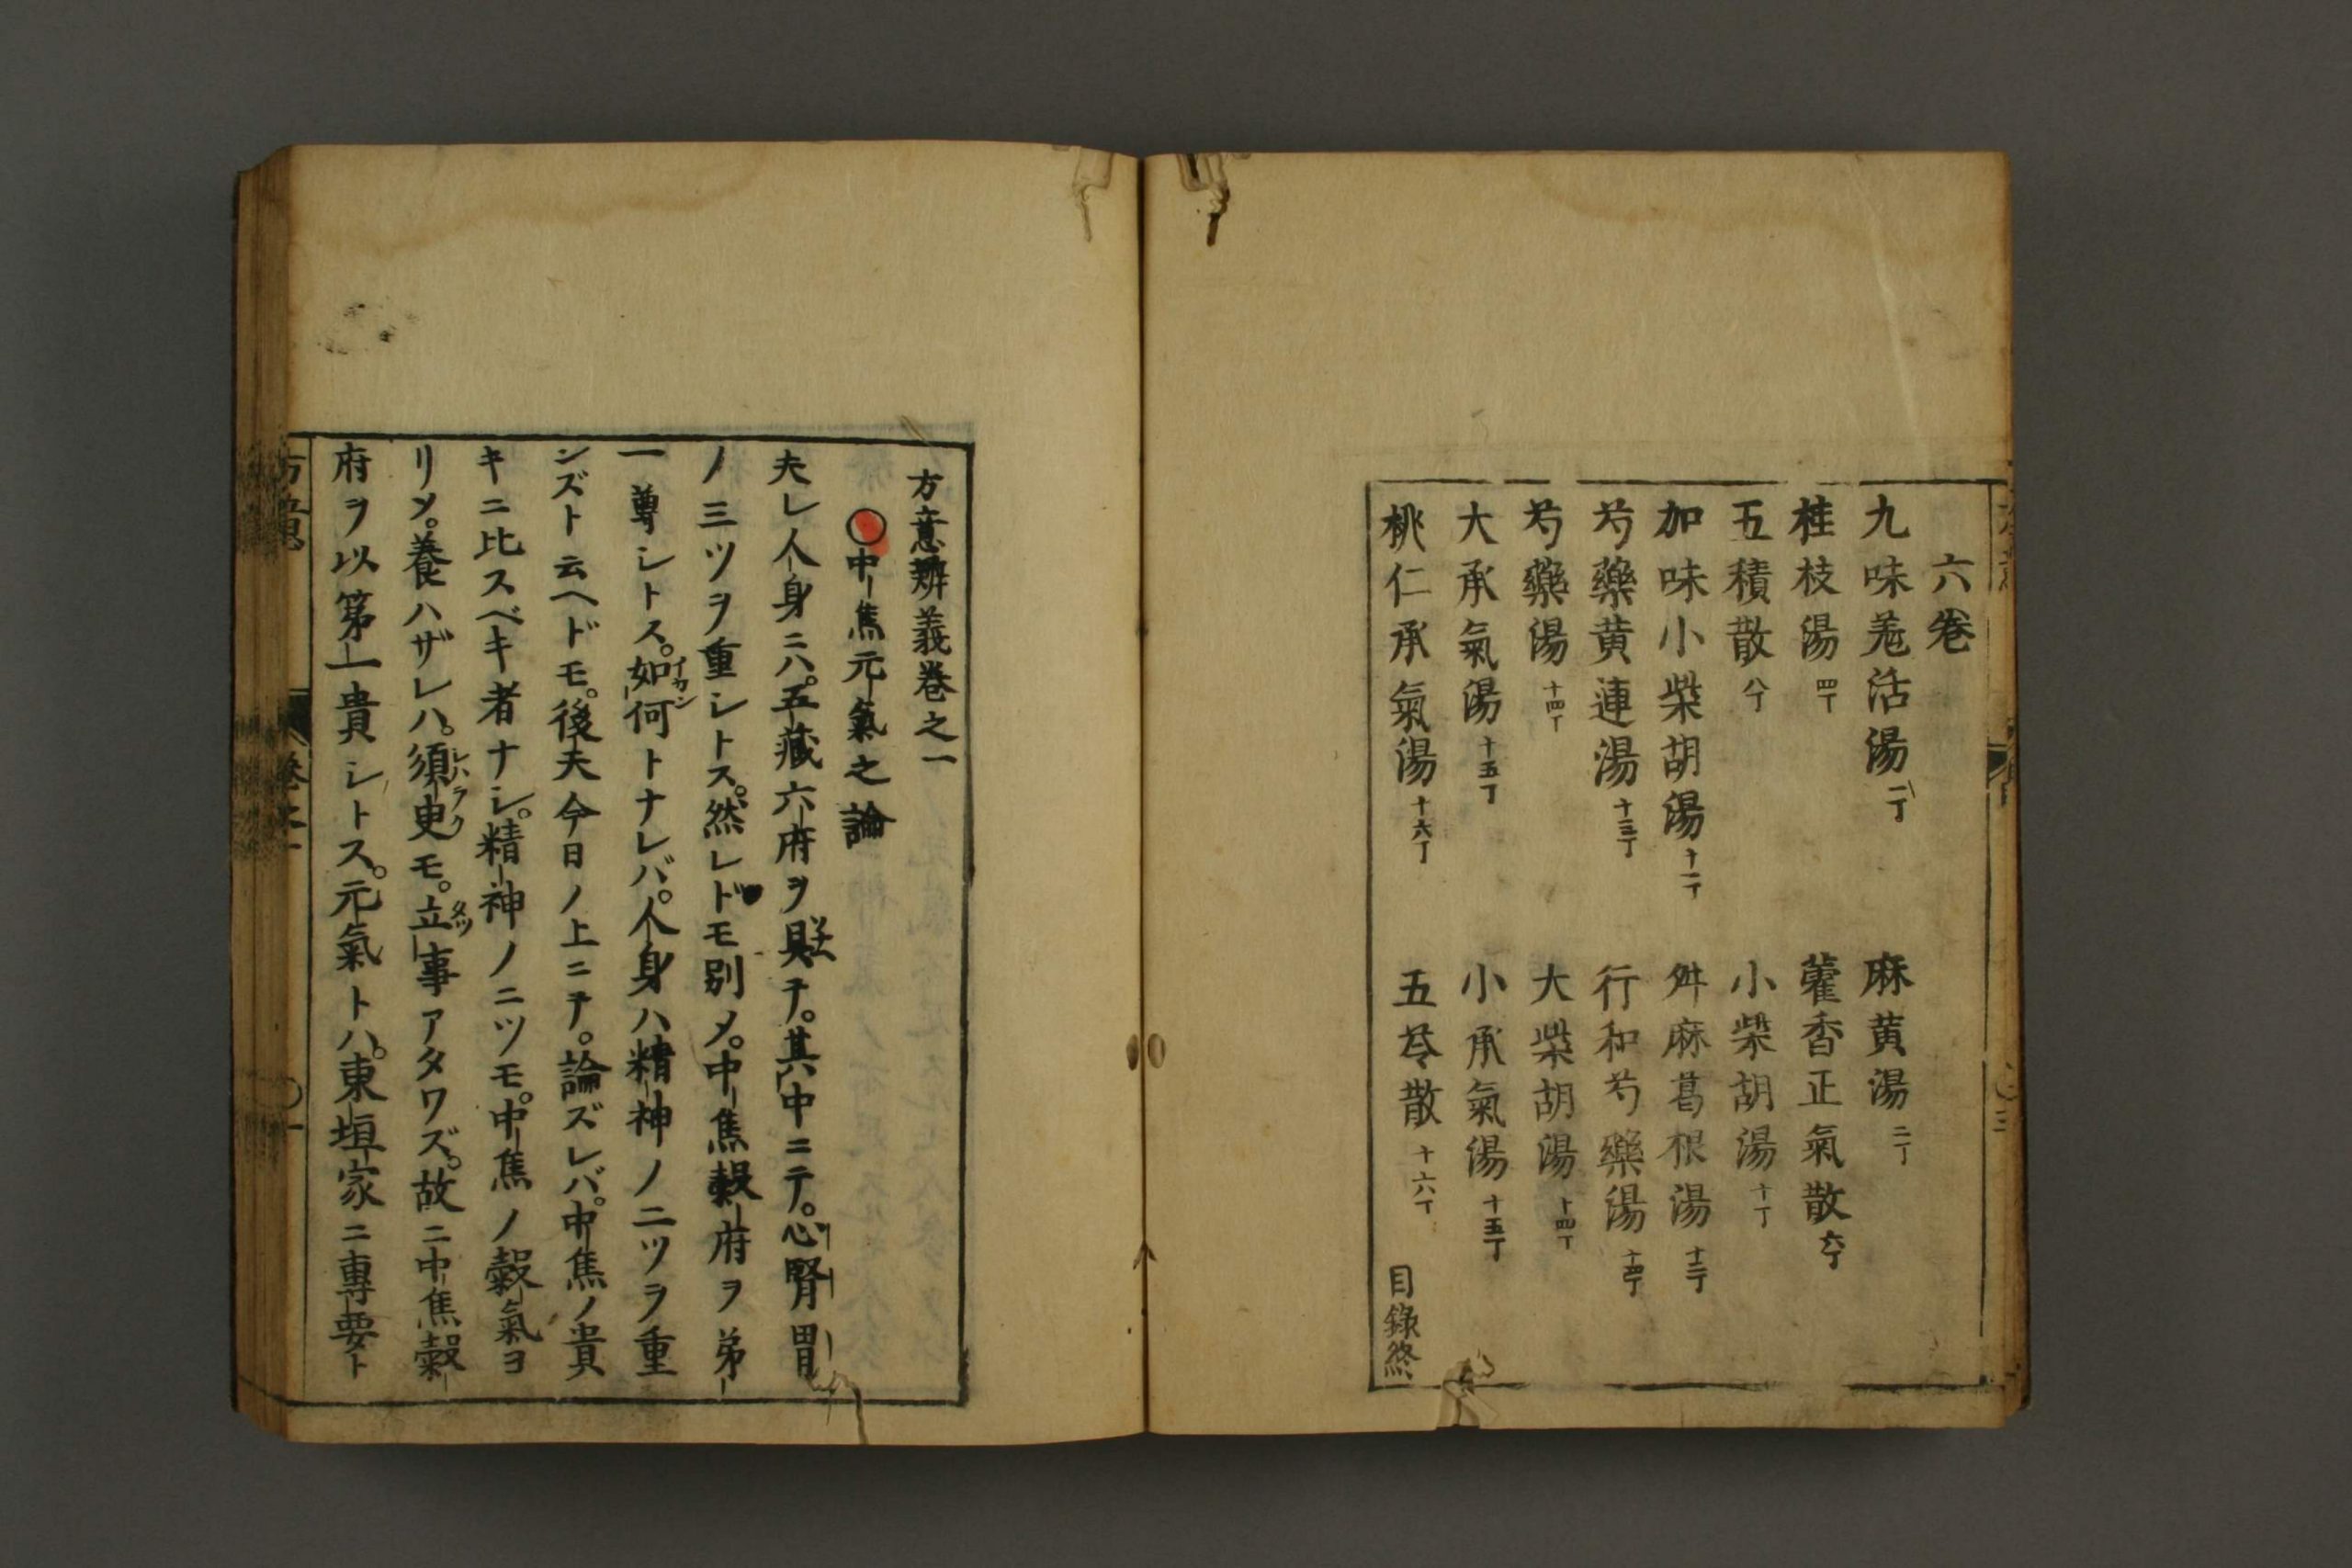 六卷
九味羗活湯 一丁
麻黄湯 二丁
桂枝湯 四丁
藿香正氣散 六丁
五積散 八丁
小柴胡湯 十丁
加味小柴胡湯 十一丁
舛麻葛根湯 十二丁
芍藥黄連湯 十三丁
行和芍藥湯 十四丁
芍藥湯 十四丁
大柴胡湯 十四丁
大承氣湯 十五丁
小承氣湯 十五丁
桃仁承氣湯 十六丁
五苓散 十六丁
目錄終
方意辨義卷之一
○中焦元氣之論
夫レ人身ニハ。五藏六府ヲ具テ。其中ニテ。心腎胃
ノ三ツヲ重シトス。然レドモ別メ。中焦穀府ヲ弟
一尊シトス。如何トナレバ。人身ハ精神ノ二ツヲ重
ンズト云ヘドモ。後天今日ノ上ニテ。論ズレバ。中焦ノ貴
キニ比スベキ者ナシ。精神ノ二ツモ。中焦ノ穀氣ヨ
リメ。養ハザレハ。須臾モ。立事アタワズ。故ニ中焦穀
府ヲ以第一貴シトス。元氣トハ。東垣家ニ專要ト
方意 卷之一 ○一